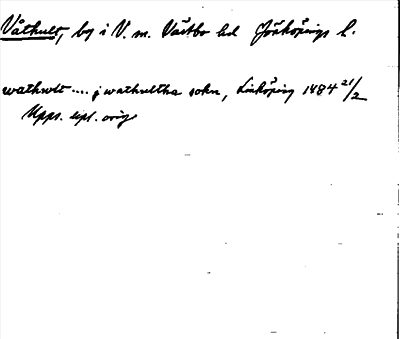 Våthult, by i V. m. Västbo hd Jönköpings l.
wathwlt .... j wathultha sokn, Linköping 1484 21/2
Upps. dipl. orig